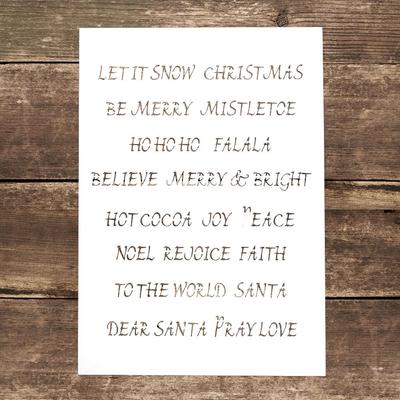 LET IT SNOW CHRISTMAS
BE MERRY MISTLETOE
HO HO HO FALALA
BELIEVE MERRY & BRIGHT
HOT COCOA JOY PEACE
NOEL REJOICE FAITH
TO THE WORLD SANTA
DEAR SANTA PRAY LOVE